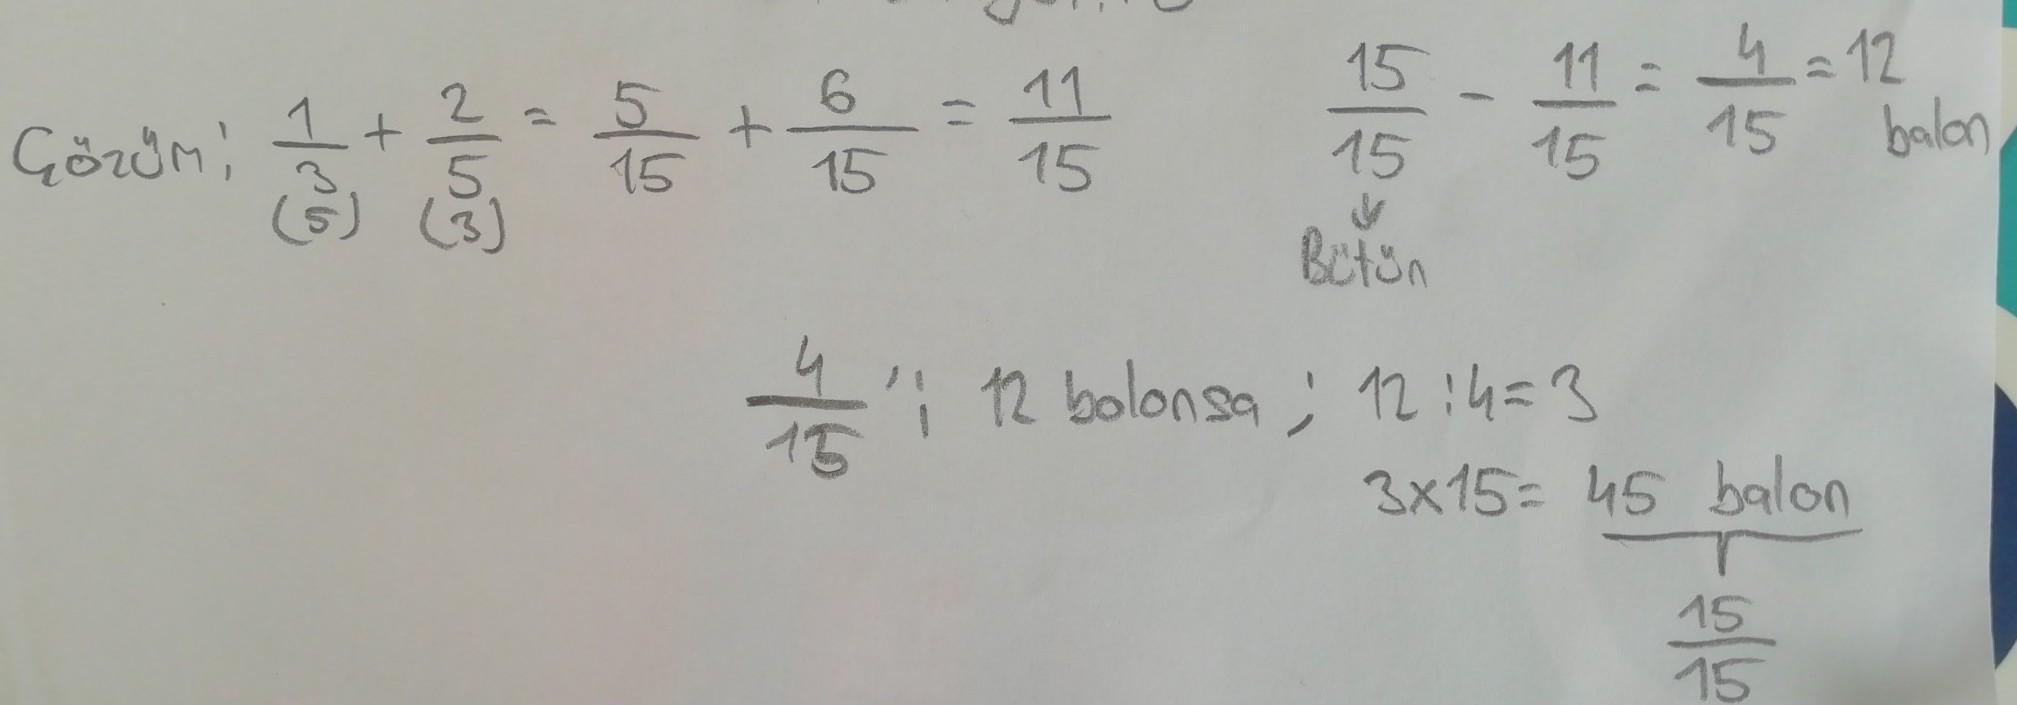 Çözüm: 1/3 + 2/5 = 5/15 + 6/15 = 11/15
(5) (3)
15/15 - 11/15 = 4/15 = 12 balon
Bütün
4/15 'i 12 bolonsa ; 12 : 4 = 3
3x15 = 45 balon
15/15